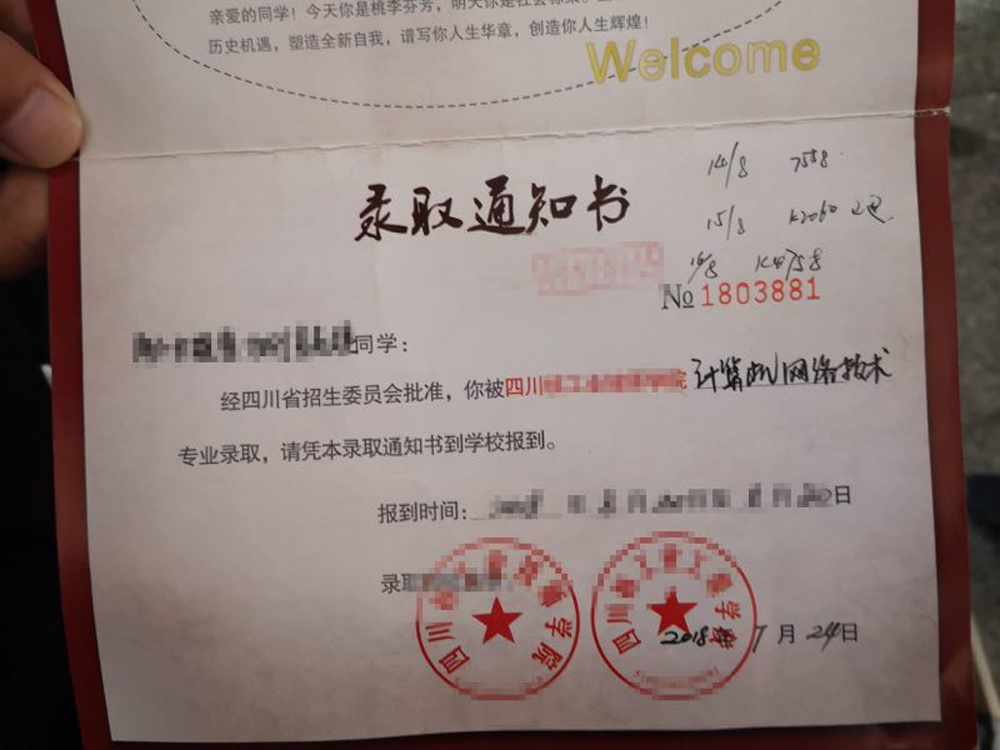 亲爱的同学！今天你是桃李芬芳，明天你是社会
历史机遇，塑造全新自我，谱写你人生华章，创造你人生辉煌！
Welcome
录取通知书
14/8 7558
15/8 K2060
16/8 K4758
№ 1803881
同学：
经四川省招生委员会批准，你被四川 院 计算机网络技术
专业录取，请凭本录取通知书到学校报到。
报到时间： 日
录取
四川 学院
四川 学院
2018年 7月 24日